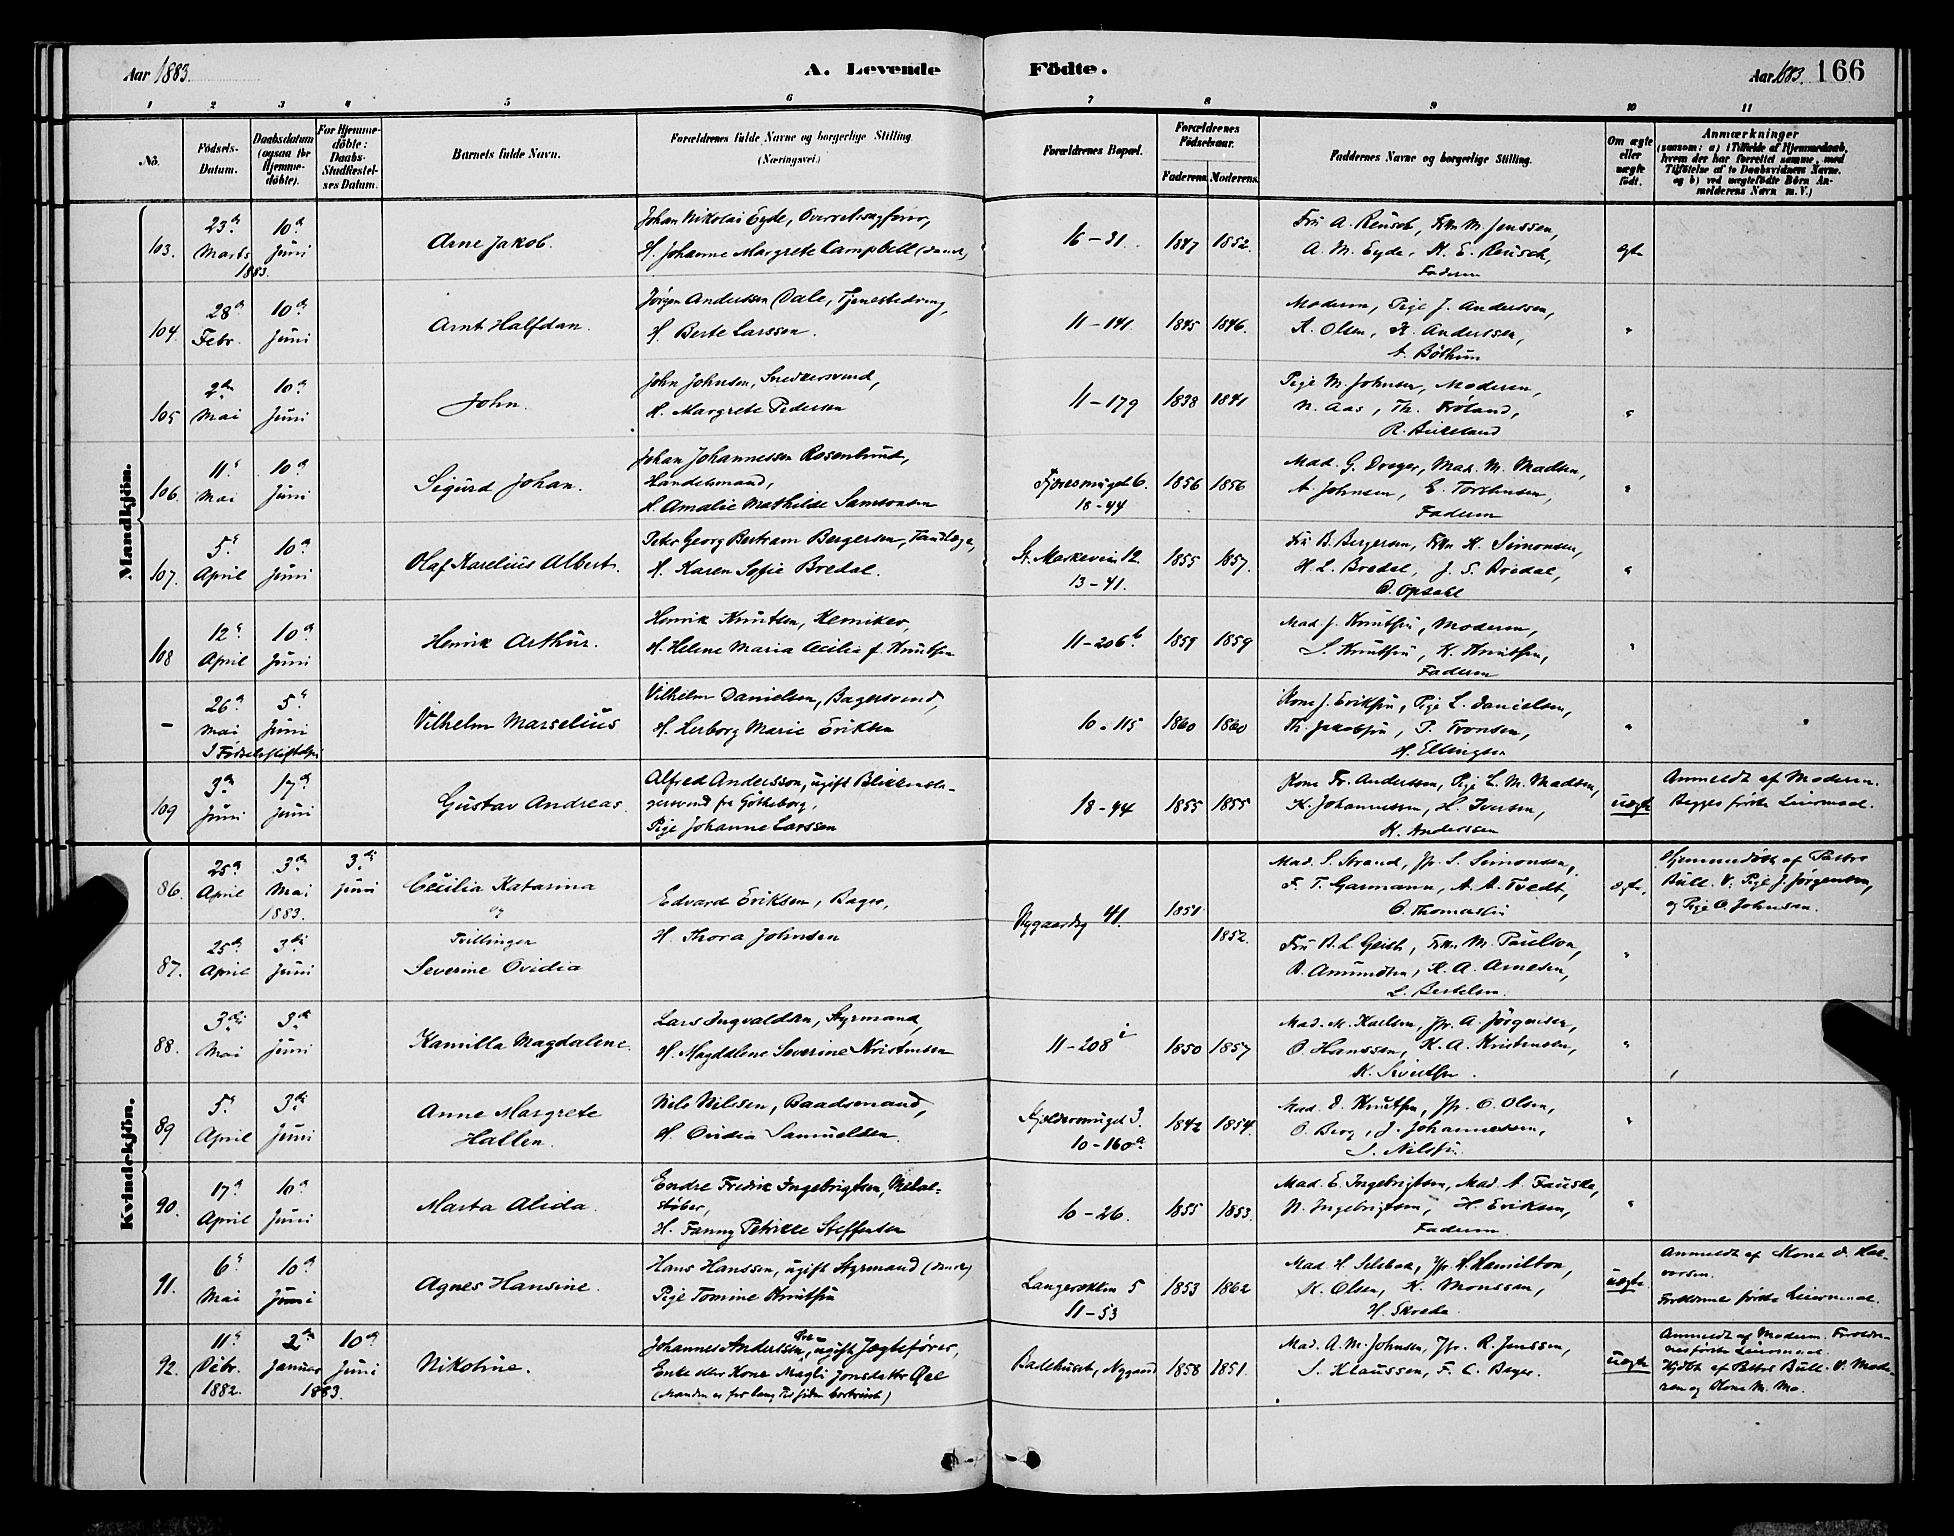 Aar 1883.
A. Levende Födte.
Aar 1883. 166
1 2 3 4 5 6 7 8 9 10 11
No.
Födsels-Datum.
Daabsdatum (ogsaa for Hjemmedöbte).
For Hjemmedöbte: Daabs-Stadfæstelses Datum.
Barnets fulde Navn.
Forældrenes fulde Navne og borgerlige Stilling (Næringsvei.)
Forældrenes Bopæl.
Forældrenes Födselsaar.
Faderens Moderens
Faddernes Navne og borgerlige Stilling.
Om ægte eller uægte födt.
Anmærkninger
(saasom: a) i Tilfælde af Hjemmedaab,
hvem der har forrettet samme, med
Tilföielse af to Daabsvidners Navne.
og b) ved uægtefödte Børn Anmelderens Navn m. V.)
Mandkjön.
103. 23de Marts 1883. 10de Juni
Arne Jakob.
Johan Nikolai Eyde, Overretssagfører,
H. Johanne Margrete Campbell (dansk)
16-31. 1847 1852.
Fru A. Reusch, Frkn M. Jenssen,
A. M. Eyde, H. E. Reusch,
Faderen
ægte
104. 28de Febr. 10de Juni
Arnt Halfdan.
Jørgen Anderssen Dale, Tjenestedreng,
H. Berte Larssen.
11-141 1845 1846.
Moderen, Pige J. Anderssen,
A. Olsen, K. Anderssen,
A. Böthun
"
105 2den Mai 10de Juni
John.
John Johnsen, Snedkersvend,
H. Margrete Pedersen
11-179 1838 1841
Pige M. Johnsen, Moderen,
N. Aas, Th. Frøland,
R. Birkeland
"
106. 11te Mai 10de Juni
Sigurd Johan.
Johan Johannessen Rosenlund,
Handelsmand,
H. Amalie Mathilde Samsonsen
18-44 1856 1856
Mad. G. Dreyer, Mad. M. Madsen,
A. Johnsen, E. Torstensen,
Faderen
"
107. 5te April 10de Juni
Olaf Karelius Albert.
Peter Georg Bertram Bergersen, Tandlæge,
H. Karen Sofie Bredal.
St. Markevein 12.
13-41. 1855 1857.
Fru B. Bergersen, Frkn K. Simonsen,
H. L. Bredal, J. S. Bredal,
O. Opsahl
"
108 12te April 10de Juni
Henrik Arthur.
Henrik Knutsen, Kemiker,
H. Helene Maria Cecilia f. Knutsen
11-206b 1859 1859
Mad. J. Knutsen, Moderen,
S. Knutsen, K. Knutsen,
Faderen
"
- 26de Mai 5te Juni
I Fødselsstiftelsen
Vilhelm Marselius
Vilhelm Danielsen, Bagersvend,
H. Herborg Marie Eriksen
10-115 1860 1860
Kone J. Eriksen, Pige L. Danielsen,
Th. Jakobsen, P. Tronsen,
H. Ellingsen
"
109 3de Juni 17de Juni
Gustav Andreas.
Alfred Andersson, ugift Blikkenslagersvend fra Götheborg,
Pige Johanne Larssen
18-94 1855 1855
Kone Fr. Anderssen, Pige L. M. Madsen,
K. Johannessen, H. Iversen,
K. Anderssen
uægte
Anmeldt af Moderen.
Begges første Leiermaal.
Kvindekjön.
86. 25de April 3de Mai 1883. 3die Juni
Cecilia Katarina
og
Tvillinger
87. 25de April 3die Juni
Severine Ovidia
Edvard Eriksen, Bager,
H. Thora Johnsen
Nygaardsg 41. 1851 1852.
Mad. S. Strand, Jfr. S. Simonsen,
F. T. Garmann, A. A. Tvedt,
O. Thomassen
ægte,
Hjemmedøbt af Pastor
Bull. V. Pige J. Jørgensen,
og Pige O. Johnsen.
Fru B. L. Geith, Frkn M. Paulson,
B. Amundsen, K. A. Arnesen,
L. Bertelsen.
"
88. 3die Mai 3die Juni
Kamilla Magdalene.
Lars Ingvaldsen, Styrmand,
H. Magdalene Severine Kristensen
11-208i 1850 1857
Mad. M. Karlsen, Jfr. A. Jørgensen,
O. Hanssen, K. A. Kristensen,
K. Sivertsen.
"
89 5te April 3die Juni
Anne Margrete
Hallen.
Nils Nilssen, Baadsmand,
H. Ovidia Samuelsen.
Skjoldersmuget 3.
10-160a. 1842 1854.
Mad. D. Knutsen, Jfr. O. Olsen,
O. Berg, J. Johannessen,
S. Nilssen.
"
90. 17de April 10de Juni
Marta Alida.
Endre Fredrik Ingebrigtsen, Metalstøber,
H. Fanny Petrikke Steffensen
16-26. 1855 1853.
Mad. E. Ingebrigtsen, Mad. A. Fauske,
N. Ingebrigtsen, H. Eriksen,
Faderen.
"
91. 6te Mai 10de Juni
Agnes Hansine.
Hans Hanssen, ugift Styrmand (dansk)
Pige Tomine Knutsen
11-53 1853 1862
Mad. H. Selsbak, Jfr. H. Hamilton,
K. Olsen, K. Monssen,
H. Skrede.
uægte
Anmeldt af Kone O. Halvorsen.
Forældrenes første Leiermaal.
92. 11te Debr. 1882. 2den Januar 10de Juni 1883.
Nikoline.
Johannes Anderssen, ugift Jægtefører,
Enke eller Kone Magli Jonsdatter
(Manden er for lang Tid siden bortreist)
Ballhuset, Nygaard 1858 1851.
Mad. A. M. Johnsen, Jfr. R. Jenssen,
S. Klaussen, F. C. Bager.
uægte
Anmeldt af Moderen. Forældrenes første Leiermaal.
Hjdøbt af Pastor Bull. V. Moderen og Kone M. Mo.